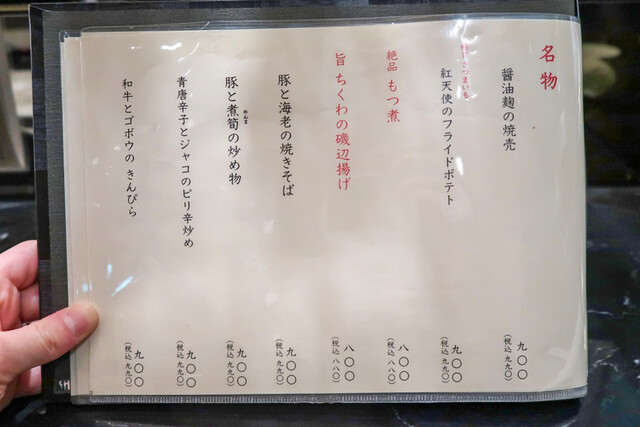 名物
醤油麹の焼売 九〇〇
(税込 九九〇)
さつまいも
紅天使のフライドポテト 九〇〇
(税込 九九〇)
絶品 もつ煮 八〇〇
(税込 八八〇)
旨 ちくわの磯辺揚げ 八〇〇
(税込 八八〇)
豚と海老の焼きそば 九〇〇
(税込 九九〇)
めんま
豚と煮筍の炒め物 九〇〇
(税込 九九〇)
青唐辛子とジャコのピリ辛炒め 九〇〇
(税込 九九〇)
和牛とゴボウの きんぴら 九〇〇
(税込 九九〇)